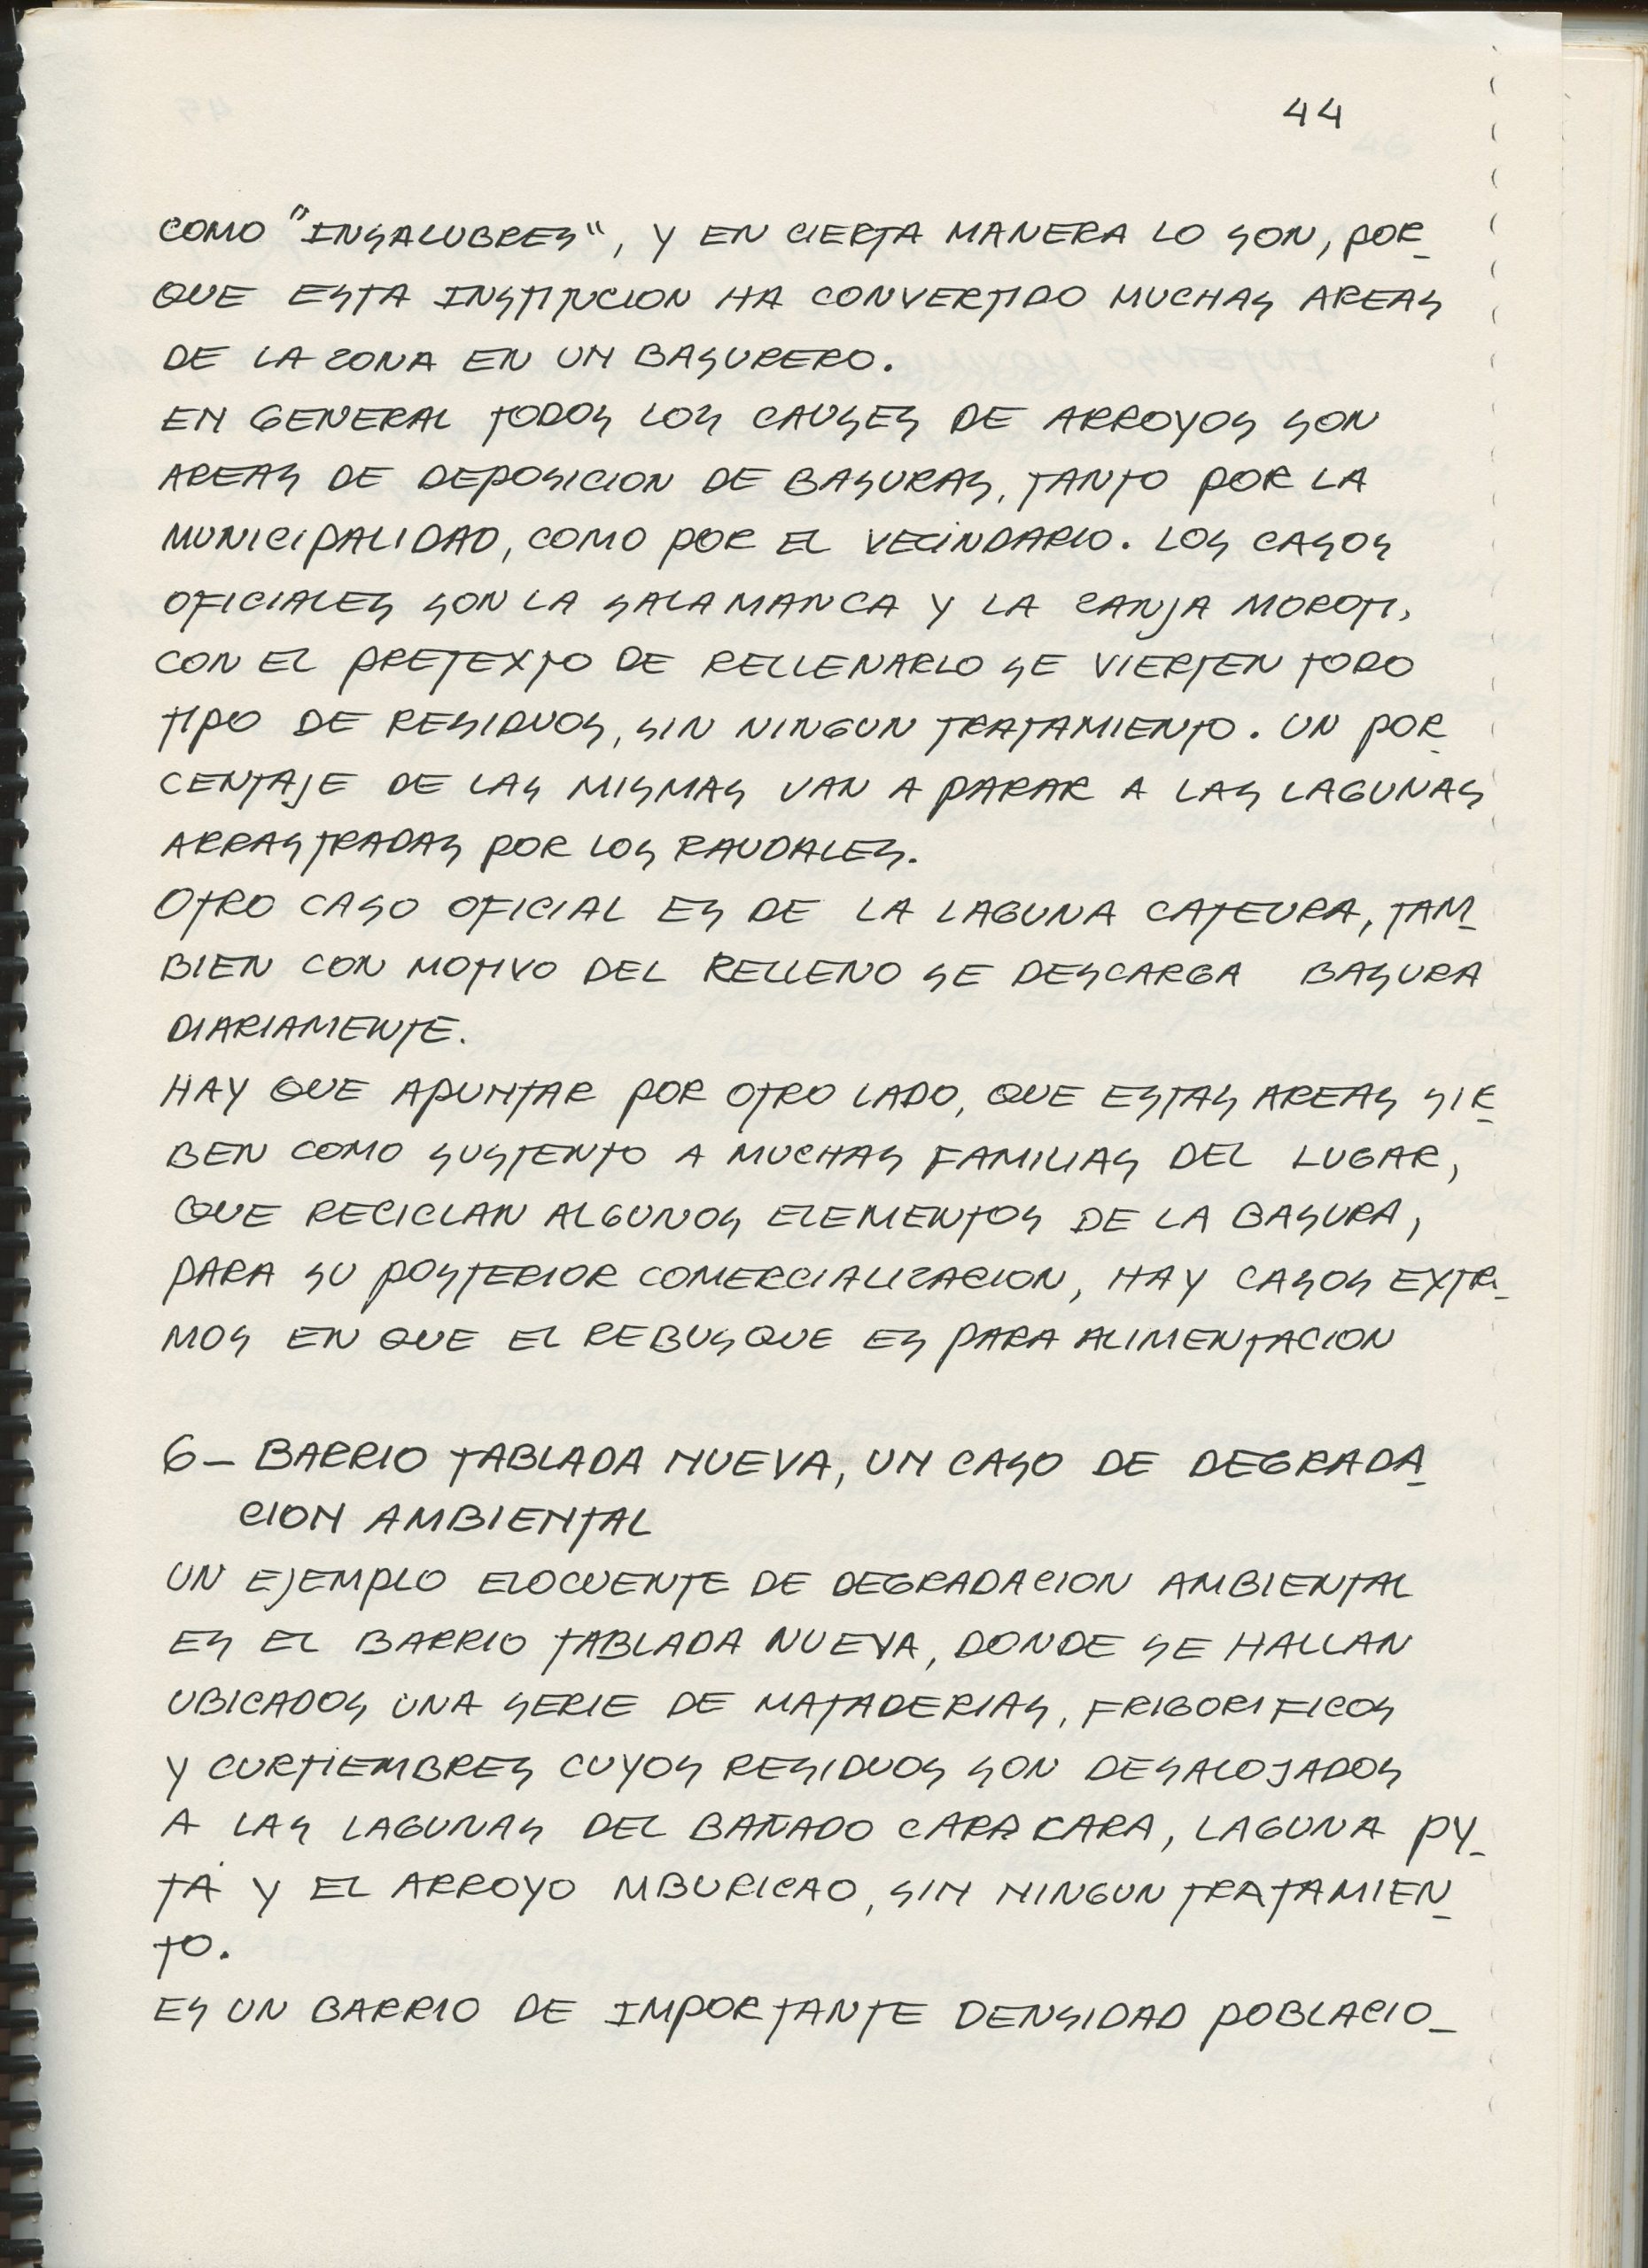 44
COMO "INSALUBRES", Y EN CIERTA MANERA LO SON, POR_
QUE ESTA INSTITUCION HA CONVERTIDO MUCHAS AREAS
DE LA ZONA EN UN BASURERO.
EN GENERAL TODOS LOS CAUSES DE ARROYOS SON
AREAS DE DEPOSICION DE BASURAS, TANTO POR LA
MUNICIPALIDAD, COMO POR EL VECINDARIO. LOS CASOS
OFICIALES SON LA SALAMANCA Y LA CANJA MOROTI,
CON EL PRETEXTO DE RELLENARLO SE VIERTEN TODO
TIPO DE RESIDUOS, SIN NINGUN TRATAMIENTO. UN POR_
CENTAJE DE LAS MISMAS VAN A PARAR A LAS LAGUNAS
ARRASTRADAS POR LOS RAUDALES.
OTRO CASO OFICIAL ES DE LA LAGUNA CATEURA, TAM_
BIEN CON MOTIVO DEL RELLENO SE DESCARGA BASURA
DIARIAMENTE.
HAY QUE APUNTAR POR OTRO LADO, QUE ESTAS AREAS SIR_
BEN COMO SUSTENTO A MUCHAS FAMILIAS DEL LUGAR,
QUE RECICLAN ALGUNOS ELEMENTOS DE LA BASURA,
PARA SU POSTERIOR COMERCIALIZACION, HAY CASOS EXTR_
MOS EN QUE EL REBUSQUE ES PARA ALIMENTACION
6_ BARRIO TABLADA NUEVA, UN CASO DE DEGRADA_
CION AMBIENTAL
UN EJEMPLO ELOCUENTE DE DEGRADACION AMBIENTAL
ES EL BARRIO TABLADA NUEVA, DONDE SE HALLAN
UBICADOS UNA SERIE DE MATADERIAS, FRIGORIFICOS
Y CURTIEMBRES CUYOS RESIDUOS SON DESALOJADOS
A LAS LAGUNAS DEL BAÑADO CARA KARA, LAGUNA PY_
TÁ Y EL ARROYO MBURICAO, SIN NINGUN TRATAMIEN_
TO.
ES UN BARRIO DE IMPORTANTE DENSIDAD POBLACIO_